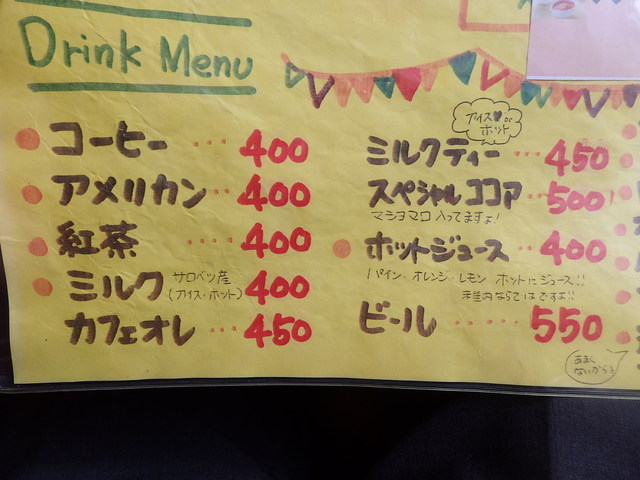 Drink Menu
コーヒー ... 400
アメリカン .. 400
紅茶 .... 400
ミルク サロベツ産 (アイス・ホット) 400
カフェオレ .... 450
アイス♥or
ホット
ミルクティー ... 450
スペシャルココア .. 500
マシュマロ入ってますよ!
ホットジュース ... 400
パイン・オレンジ・レモン ホットにジュース!!
稚内ならではですよ!!
ビール ...... 550
あまく
ないからネ